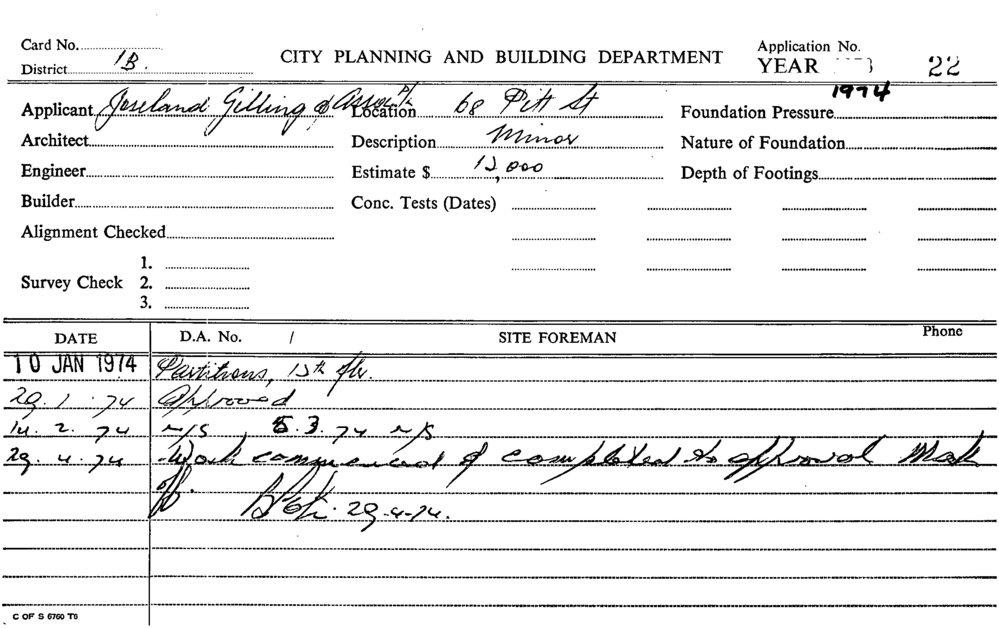 Card No.
CITY PLANNING AND BUILDING DEPARTMENT
Application No.
District 1B.
YEAR 1974 22
Applicant Joseland Gilling & Assoc P/L
Location 68 Pitt St
Foundation Pressure
Architect
Description Minor
Nature of Foundation
Engineer
Estimate $ 12,000
Depth of Footings
Builder
Conc. Tests (Dates)
Alignment Checked
Survey Check 1.
2.
3.
DATE D.A. No. / SITE FOREMAN Phone
10 JAN 1974 Partitions, 12th flr.
29.1.74 Approved
14.2.74 n/s 5.3.74 n/s
29.4.74 Work commenced & completed to approval Mark
off. 29-4-74.
C OF S 6760 T6